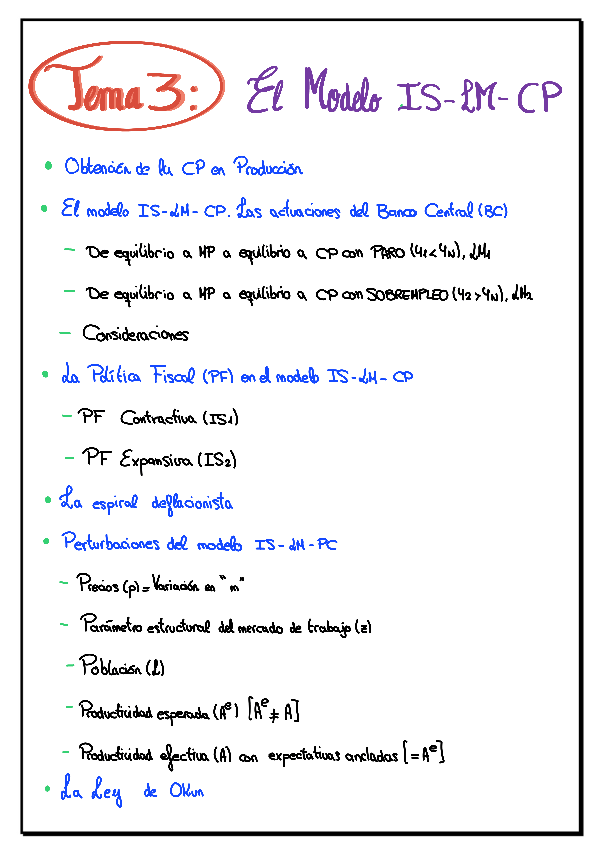 Tema 3: El Modelo IS-LM-CP
• Obtención de la CP en Producción
• El modelo IS-LM-CP. Las actuaciones del Banco Central (BC)
– De equilibrio a MP a equilibrio a CP con PARO (Y1<YN), LM1
– De equilibrio a MP a equilibrio a CP con SOBREMPLEO (Y2>YN), LM2
– Consideraciones
• La Política Fiscal (PF) en el modelo IS-LM-CP
– PF Contractiva (IS1)
– PF Expansiva (IS2)
• La espiral deflacionista
• Perturbaciones del modelo IS-LM-PC
– Precios (p) = Variación en "m"
– Parámetro estructural del mercado de trabajo (z)
– Población (L)
– Productividad esperada (Aᵉ) [Aᵉ ≠ A]
– Productividad efectiva (A) con expectativas ancladas [=Aᵉ]
• La Ley de Okun